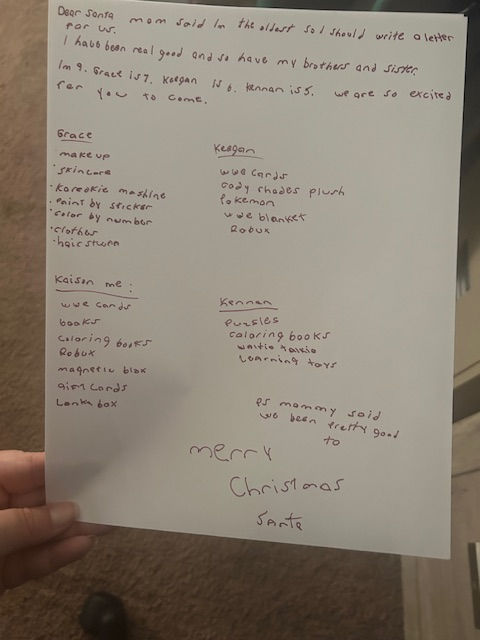 Dear Santa mom said Im the oldest so I should write a letter
for us.
I have been real good and so have my brothers and sister.
Im 9. Grace is 7. Keegan is 6. Kennan is 5. we are so excited
for you to come.
Grace
makeup
·skincare
·Kareokie mashine
·Paint by sticker
·color by number
·clothes
·hair stuff
Keegan
wwe cards
cody rhodes plush
Pokemon
wwe blanket
Robux
Kaison me:
wwe cards
books
coloring books
Robux
magnetic blox
gift cards
Lanka box
Kennan
Puzsles
coloring books
waltie talkie
learning toys
PS mommy said
we been pretty good
to
merry
Christmas
Santa